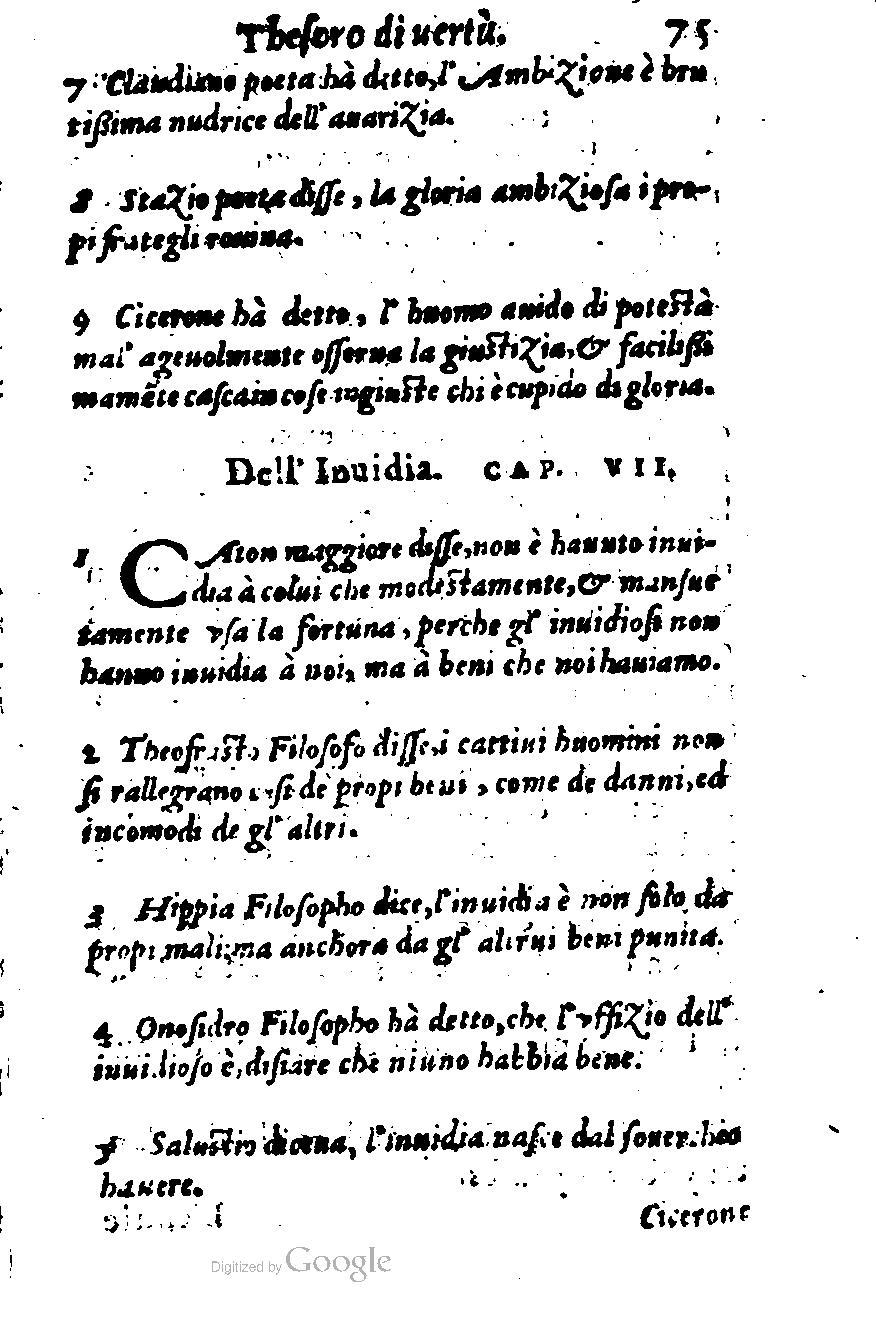 Thesoro di uertù. 75
7 Claudiano poeta hà detto, l' Ambizione è bru
tißima nudrice dell' auarizia.
8 Stazio poeta disse, la gloria ambiziosa i pro-
pi frategli rouina.
9 Cicerone hà detto, l' huomo auido di potestà
mal' ageuolmente osserua la giustizia, & facilißi
mamẽte casca in cose ingiuste chi è cupido di gloria.
Dell' Inuidia. CAP. VII.
1 CAton maggiore disse, non è hauuto inui-
dia à colui che modestamente, & mansue
tamente vsa la fortuna, perche gl' inuidiosi non
hanno inuidia à noi, ma à beni che noi hauiamo.
2 Theofrasto Filosofo disse, i cattiui huomini non
si rallegrano cosi de propi beni, come de danni, ed
incomodi de gl' altri.
3 Hippia Filosopho dice, l'inuidia è non solo da
propi mali, ma anchora da gl' altrui beni punita.
4 Onosidro Filosopho hà detto, che l'vffizio dell'
inuidioso è, disiare che niuno habbia bene.
5 Salustio diceua, l'inuidia nasce dal souerchio
hauere.
Cicerone
Digitized by Google